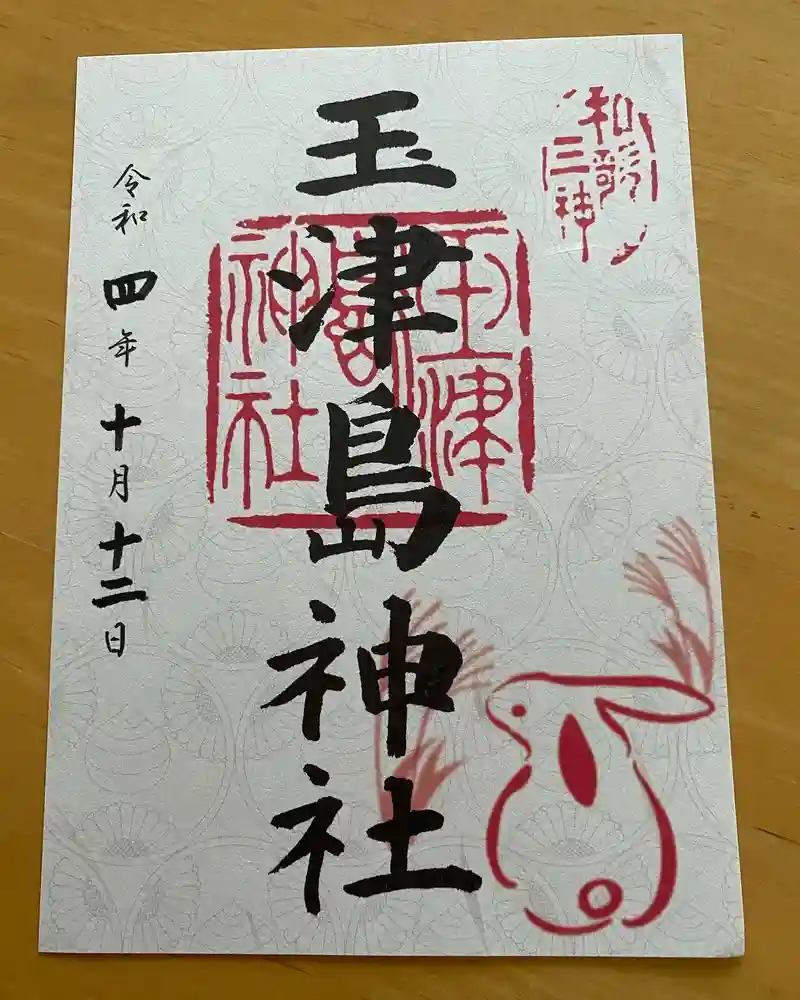 和歌
三神
玉津島神社
玉津
島
神社
令和四年十月十二日